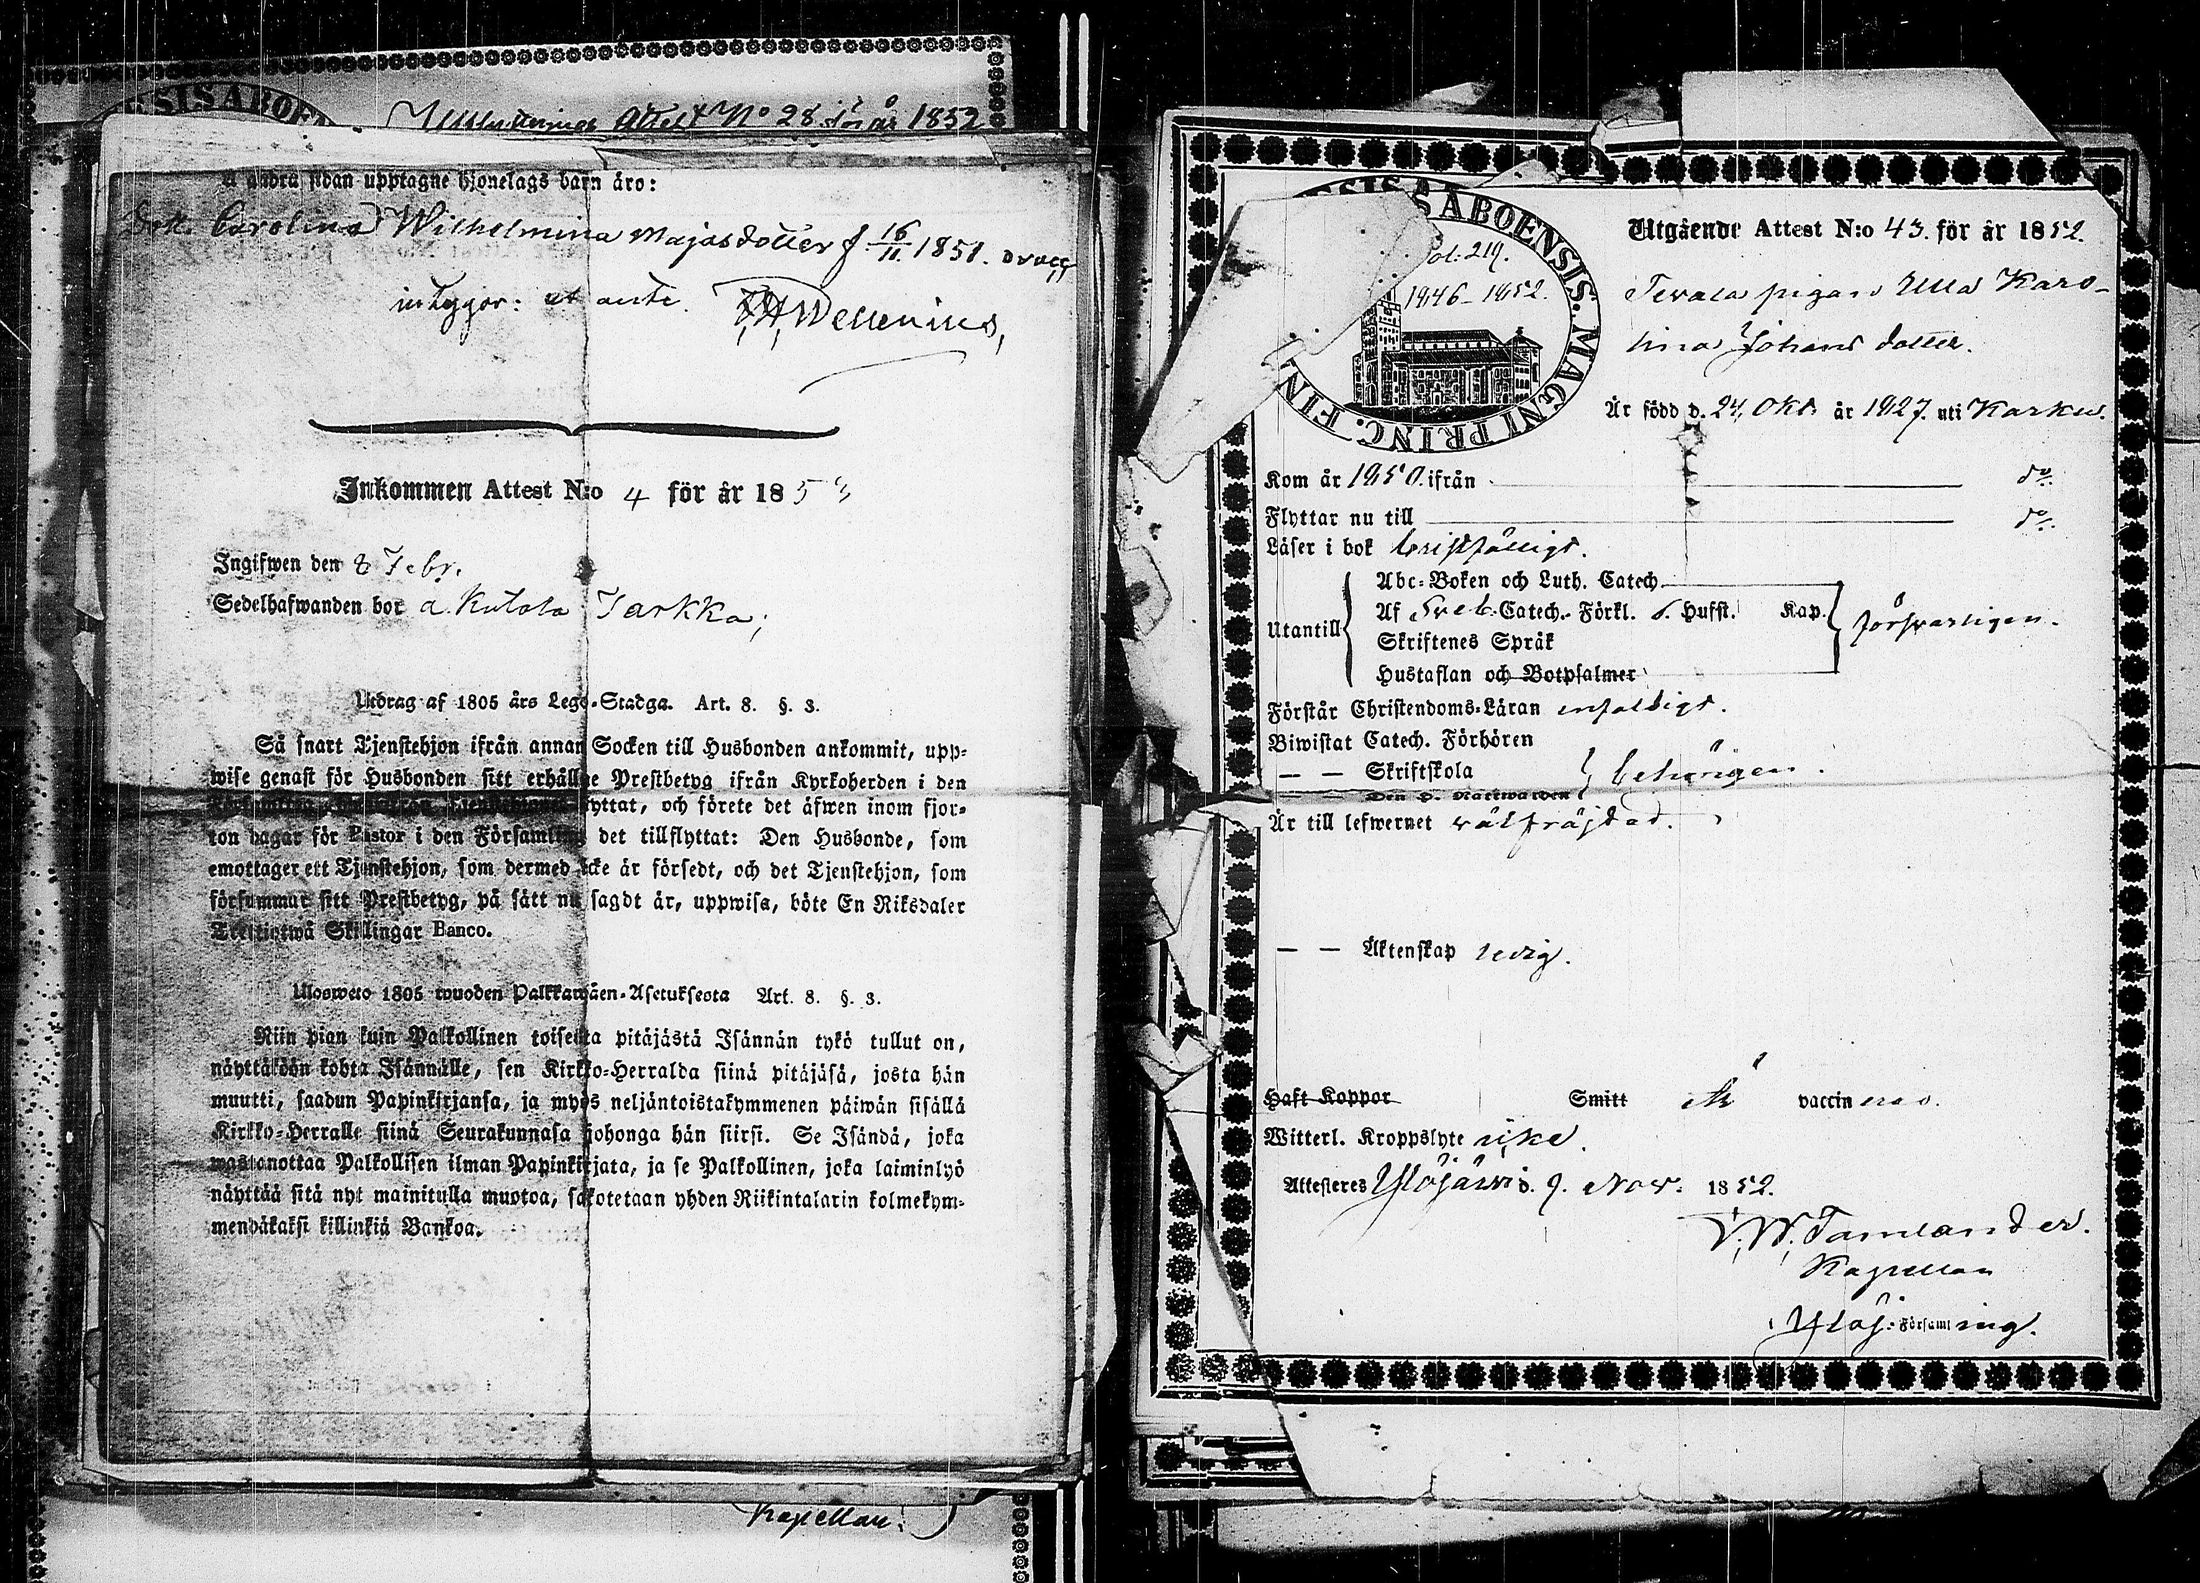 ESIS ABOEN
Attest No 28 för år 1852
å andra sidan upptagne hjonelags barn äro:
Dot. Carolina Wilhelmina Majasdotter f. 16/11 1851.
et ante
Wellenius,
Inkommen Attest N:o 4 för år 1853
Ingifwen den 8 Febr.
Sedelhafwanden bor å Kutala Jarkka;
Utdrag af 1805 års Lego-Stadga. Art. 8. §. 3.
Så snart Tjenstehjon ifrån annan Socken till Husbonden ankommit, upp-
wise genast för Husbonden sitt erhållne Prestbetyg ifrån Kyrkoherden i den
Församling, flyttat, och förete det äfwen inom fjor-
ton dagar för Pastor i den Församling det tillflyttat: Den Husbonde, som
emottager ett Tjenstehjon, som dermed icke är försedt, och det Tjenstehjon, som
försummar sitt Prestbetyg, på sätt nu sagdt är, uppwisa, böte En Riksdaler
Trettiotwå Skillingar Banco.
Ulosweto 1805 wuoden Palkkawäen-Asetuksesta Art. 8. §. 3.
Niin pian kuin Palkollinen toisesta pitäjästä Isännän tykö tullut on,
näyttäköön kohta Isännälle, sen Kirkko-Herralda siinä pitäjäsä, josta hän
muutti, saadun Papinkirjansa, ja myös neljäntoistakymmenen päiwän sisällä
Kirkko-Herralle siinä Seurakunnasa johonga hän siirsi. Se Isändä, joka
wastanottaa Palkollisen ilman Papinkirjata, ja se Palkollinen, joka laiminlyö
näyttää sitä nyt mainitulla muotoa, sakotetaan yhden Riikintalarin kolmekym-
mendäkaksi killinkiä Bankoa.
Kapellan.
ESIS ABOENSIS. MAGNI PRINC. FIN
ol. 219.
1846-1852.
Utgående Attest N:o 43. för år 1852.
pigan Ulla Karo-
lina Johans dotter.
Är född d. 24 Okt. år 1827. uti Karku.
Kom år 1850. ifrån do.
Flyttar nu till do.
Läser i bok bristfälligt.
Utantill
Abc-Boken och Luth. Catech.
Af Sveb. Catech. Förkl. 6. Hufst. Kap.
Skriftenes Språk
Hustaflan och Botpsalmer
försvarligen.
Förstår Christendoms-Läran enfaldigt.
Biwistat Catech. Förhören
— — Skriftskola
Den H. Nattwarden
behörigen.
Är till lefwernet välfräjdad.
— — Äktenskap ledig.
Haft Koppor Smitt är vaccinerad.
Witterl. Kroppslyte icke.
Attesteres Ylöjärvi d. 9. Nov. 1852.
V. W. Tamlander.
Kapellan
Ylöj. Församling.